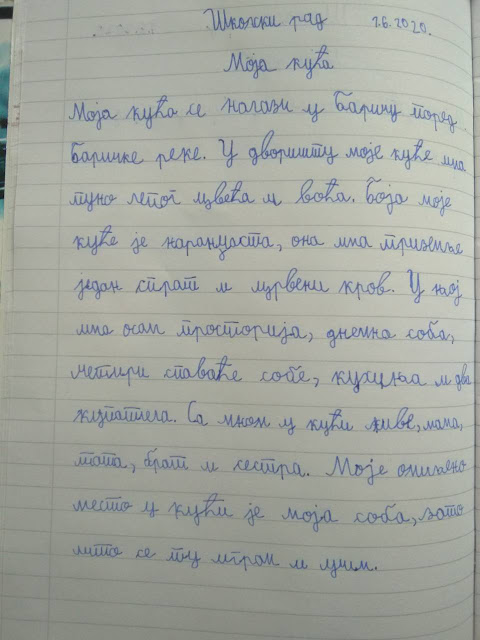 Школски рад 1.6.2020.
Моја кућа
Моја кућа се налази у Баричу поред
Баричке реке. У дворишту моје куће има
пуно лепог цвећа и воћа. Боја моје
куће је наранџаста, она има приземље
један спрат и црвени кров. У њој
има осам просторија, дневна соба,
четири спаваће собе, кухиња и два
купатила. Са мном у кући живе, мама,
тата, брат и сестра. Моје омиљено
место у кући је моја соба, зато
што се ту играм и учим.